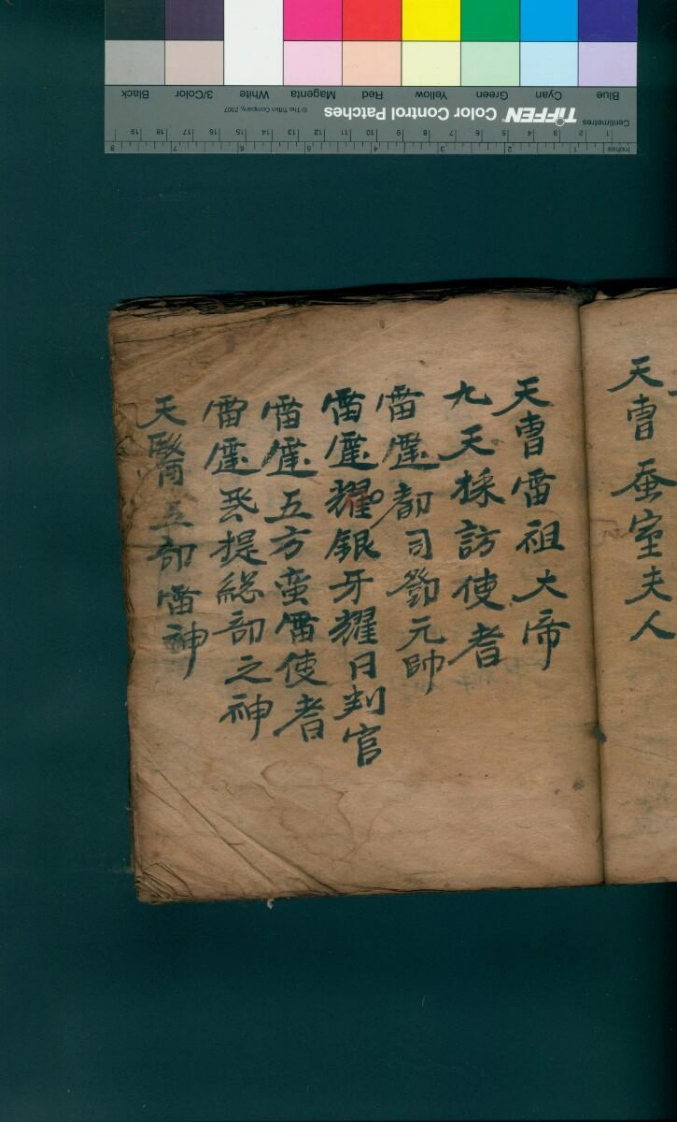 Blue Cyan Green Yellow Red Magenta White 3/Color Black
TIFFEN Color Control Patches
© The Tiffen Company, 2007
Centimetres
1 2 3 4 5 6 7 8 9 10 11 12 13 14 15 16 17 18 19
Inches
1 2 3 4 5 6 7 8
天曺蚕室夫人
天曺雷祖大帝
九天採訪使者
雷霆都司鄧元帥
雷霆耀銀牙耀日判官
雷霆五方蛮雷使者
雷霆提総部之神
天醫五部雷神